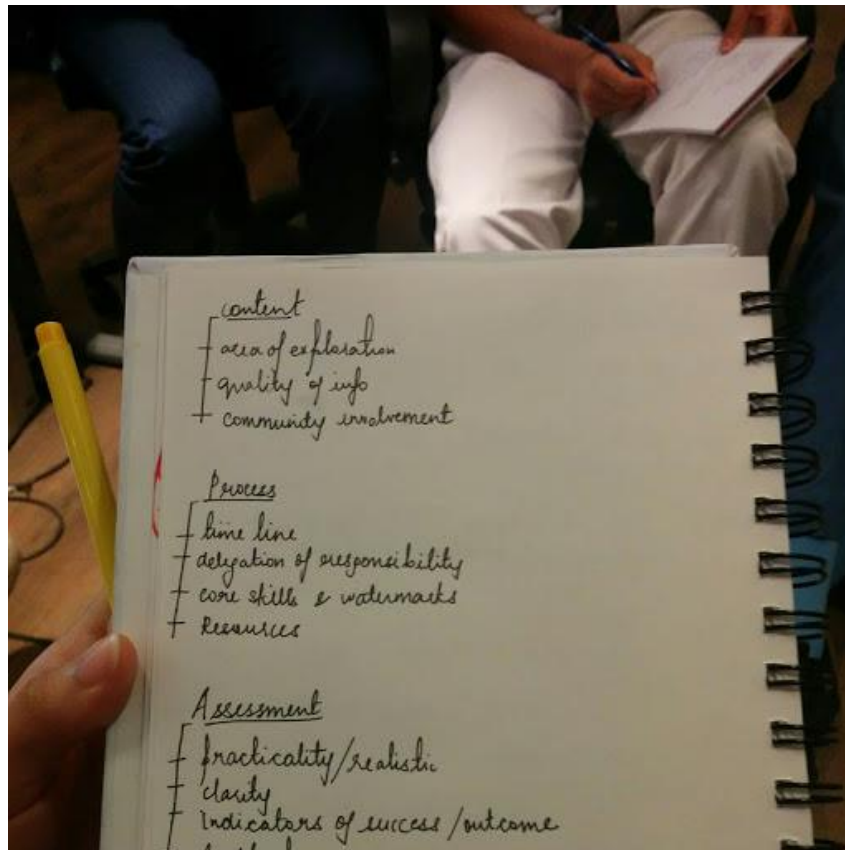 content
area of exploration
quality of info
community involvement
Process
time line
delegation of responsibility
core skills & watermarks
Resources
Assessment
practicality/realistic
clarity
Indicators of success/outcome